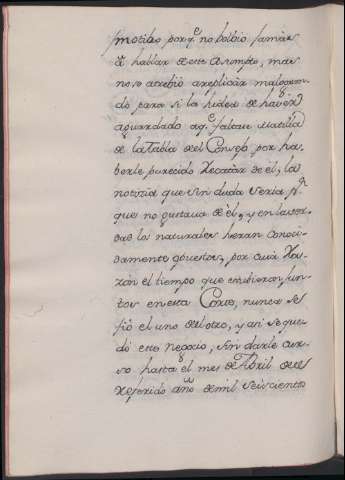 motibo porq.e no bolbio jamas
a hablar de este Asumpto, mas
no se atrebió a replicar malogran-
do para si la hidea de haver
aguardado aq.e faltase Matilla
de la Tabla del Consejo por ha-
berle parecido Recatar de él, la
noticia que sin duda seria p.r
que no gustava de él, y en la ver-
dad los naturales heran conoci-
damente opuestos, por cuia Ra-
zon el tiempo que estubieron jun-
tos en esta Corte, nunca se
fió el uno del otro, y asi se que-
dó este negocio, sin darle cur-
so hasta el mes de Abril del
Referido año de mil Seiscientos